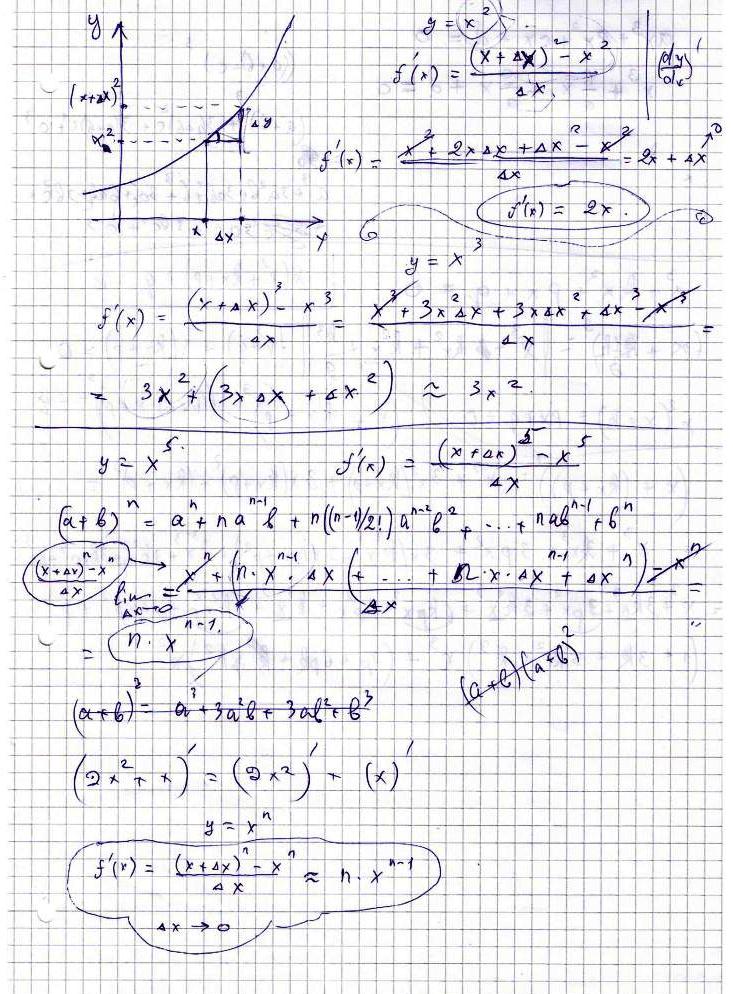 y
y = x²
f'(x) = ((x + Δx)² − x²) / Δx
(dy/dx)'
(x+Δx)²
Δy
x²
f'(x) = (x² + 2xΔx + Δx² − x²) / Δx = 2x + Δx → 0
f'(x) = 2x.
x Δx x
y = x³
f'(x) = ((x+Δx)³ − x³) / Δx = (x³ + 3x²Δx + 3xΔx² + Δx³ − x³) / Δx =
= 3x² + (3xΔx + Δx²) ≈ 3x².
y = x⁵. f'(x) = ((x + Δx)⁵ − x⁵) / Δx
(a+b)ⁿ = aⁿ + naⁿ⁻¹b + n((n-1)/2!)aⁿ⁻²b² + ... + nabⁿ⁻¹ + bⁿ
((x+Δx)ⁿ − xⁿ) / Δx → lim Δx→0 = (xⁿ + (n·xⁿ⁻¹·Δx (+ .... + n·x·Δxⁿ⁻¹ + Δxⁿ) − xⁿ) / Δx =
= n·xⁿ⁻¹.
(a+b)(a+b)²
(a+b)³ = a³ + 3a²b + 3ab² + b³
(2x² + x)' = (2x²)' + (x)'
y = xⁿ
f'(x) = ((x+Δx)ⁿ − xⁿ) / Δx ≈ n·xⁿ⁻¹
Δx → 0